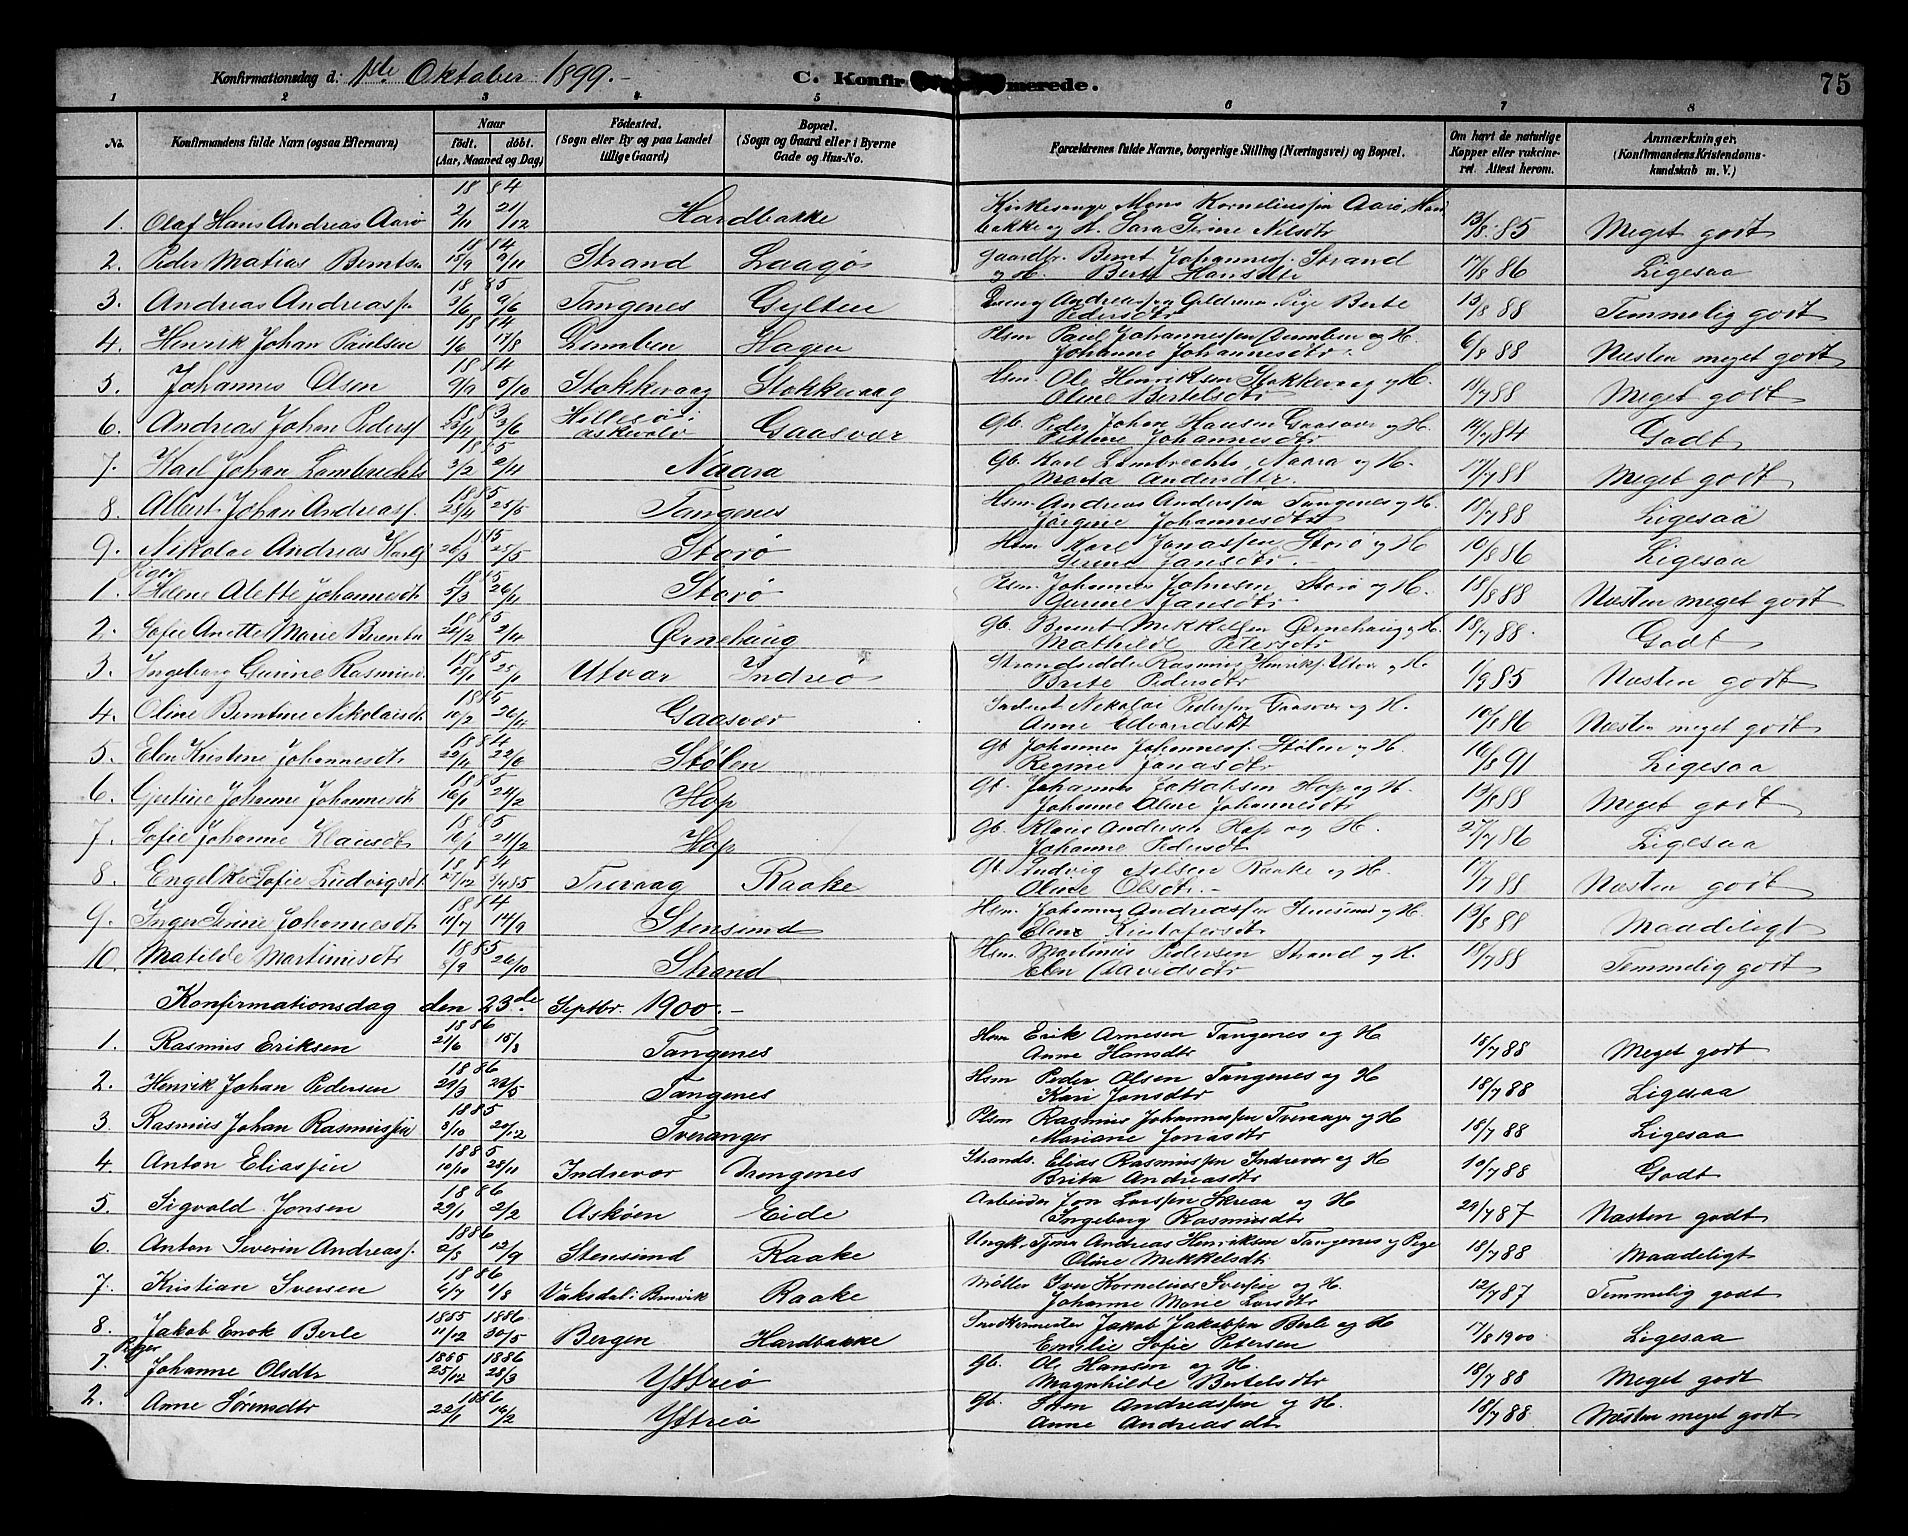 Konfirmationsdag d: 1ste Oktober 1899.- C. Konfirmerede. 75
1 2 3 4 5 6 7 8
No. Konfirmandens fulde Navn (ogsaa Efternavn) Naar født. døbt. (Aar, Maaned og Dag) Födested. (Sogn eller By og paa Landet tillige Gaard) Bopæl. (Sogn og Gaard eller i Byerne Gade og Hus-No. Forældrenes fulde Navne, borgerlige Stilling (Næringsvei) og Bopæl. Om havt de naturlige Kopper eller vakcineret. Attest herom. Anmærkninger. (Konfirmandens Kristendomskundskab m. V.)
1. Olaf Hans Andreas Aarø 1884 2/11 21/12 Hardbakke Kirkesanger Mons Korneliussen Aarø, Hardbakke og H. Sara Serine Nilsdtr 13/8 85 Meget godt
2. Peder Matias Berntsen 1884 18/9 9/11 Strand Laagø Gaardbr. Bernt Johannesf. Strand og H. Berte Hansdtr 17/8 86 Ligesaa
3. Andreas Andreasf. 1885 3/6 9/6 Tangenes Gylten Andreas Pige Berte Pedersdtr 13/8 88 Temmelig godt
4. Henrik Johan Paulsen 1884 1/6 17/8 Dumben Hagen Plsm Paul Johannessen Dumben og H. Johanne Johannesdtr. 6/8 88 Næsten meget godt
5. Johannes Olsen 1884 9/9 5/10 Stokkevaag Stokkevaag Hsm. Ole Henriksen Stokkevaag og H. Oline Bertelsdtr 18/7 88 Meget godt
6. Andreas Johan Pedersf. 1883 23/4 3/6 Hillesø i Askevold Gaasvær Gb. Peder Johan Hansen Gaasvær og H. Johannesdtr 14/7 84 Godt
7. Karl Johan Lambrechts 1885 3/2 2/4 Naara Gb. Karl Lambrechts Naara og H. Marta Andersdtr. 17/7 88 Meget godt
8. Albert Johan Andreasf. 1885 28/4 25/5 Tangenes Hsm. Andreas Andersen Tangenes og H. Jørgine Johannesdtr 18/7 88 Ligesaa
9. Nikolai Andreas Karlsf 1885 26/3 25/5 Storø Hsm Karl Jonassen Storø og H Serine Jansdtr. 10/8 86 Ligesaa
Piger
1. Helene Alette Johannesdtr 1885 5/3 26/4 Storø Plsm. Johannes Johnsen Storø og H. Gurine Jansdtr 18/8 88 Næsten meget godt
2. Sofie Anette Marie Berntsd 1885 26/2 2/4 Ørnehaug Gb. Bernt Mikkelsen Ørnehaug og H. Mathilde Petersdtr 18/7 88. Godt
3. Ingeborg Gurine Rasmusd 1885 Utvær Indreø Strandsidder Rasmus Henriksf. Utvær og H. Brite Pedersdtr 1/9 85 Næsten godt
4. Oline Berntine Nikolaisdtr 1885 10/2 26/4 Gaasvær Nikolai Pedersen Gaasvær og H. Anne Edvardsdt 10/8 86 Næsten meget godt
5. Elen Kristine Johannesdtr 1884 22/4 22/6 Stølen Gb Johannes Johannesf. Stølen og H. Regine Jonasdtr 10/8 91 Ligesaa
6. Gjertine Johanne Johannesdt 1885 16/1 24/2 Hop Gb. Johannes Jakobsen Hop og H. Johanne Oline Johannesdtr 13/8 88 Meget godt
7. Sofie Johanne Klausdtr 1885 10/1 24/2 Hop Gb. Klaus Andersen Hop og H. Johanne Pedersdt 27/7 86 Ligesaa
8. Engelke Sofie Ludvigsdt. 1884 27/12 /4 85 Trevaag Raake Gb Ludvig Nilsen Raake og H. Oline Olsdtr.- 17/7 88 Næsten godt
9. Inger Serine Johannesdtr 1884 11/7 14/9 Stensund Hsm. Johannes Andreassen Stensund og H Eline Kristofersdt 13/8 88 Maadeligt
10. Matilde Martinusdtr 1885 8/9 26/10 Strand Hsm. Martinus Pedersen Strand og H. Elen Davidsdtr 18/7 88 Temmelig godt
Konfirmationsdag den 23de Septbr. 1900.-
1. Rasmus Eriksen 1886 21/6 15/8 Tangenes Hsm Erik Arnesen Tangenes og H Anne Hansdtr 18/7 88 Meget godt
2. Henrik Johan Pedersen 1886 29/3 22/5 Tangenes Hsm Peder Olsen Tangenes og H Kari Jonsdtr 18/7 88 Ligesaa
3 Rasmus Johan Rasmussen 1885 8/10 20/12 Tveranger Plsm Rasmus Johannessen Tveranger og H Mariane Jonasdtr 18/7 88 Ligesaa
4 Anton Eliassen 1885 10/10 28/11 Indrevær Dragenes Strands. Elias Rasmussen Indrevær og H Brita Andreasdtr 10/7 88 Godt
5. Sigvald Jonsen 1886 29/1 2/2 Askøen Eide Arbeider Jon Larssen Skraa og H Ingeborg Rasmusdtr 29/7 87 Næsten godt
6. Anton Severin Andreasf. 1886 2/8 12/9 Stensund Raake Ungk. Tjener Andreas Henriksen Tangenes og Pige Oline Mikkelsdt 18/7 88 Maadeligt
7. Kristian Iversen 1886 4/7 1/8 Vaksdal i Bruvik Raake Møller Iver Kornelius Iversen og H. Johanne Marie Larsdtr 12/7 87 Temmelig godt
8. Jakob Enok Berle 1885 11/12 1886 30/5 Bergen Hardbakke Snedkermester Jakob Jakobsen Berle og H Emilie Sofie Petersen 17/8 1900 Ligesaa
Piger
1. Johanne Olsdtr 1885 25/12 1886 28/3 Yttreø Gb. Ole Hansen og H. Magnhilde Bertelsdtr 18/7 88 Meget godt
2. Anne Sørensdtr 1886 22/1 14/2 Yttreø Gb. Sören Andreassen og H. Anne Andreasdt 18/7 88 Næsten meget godt